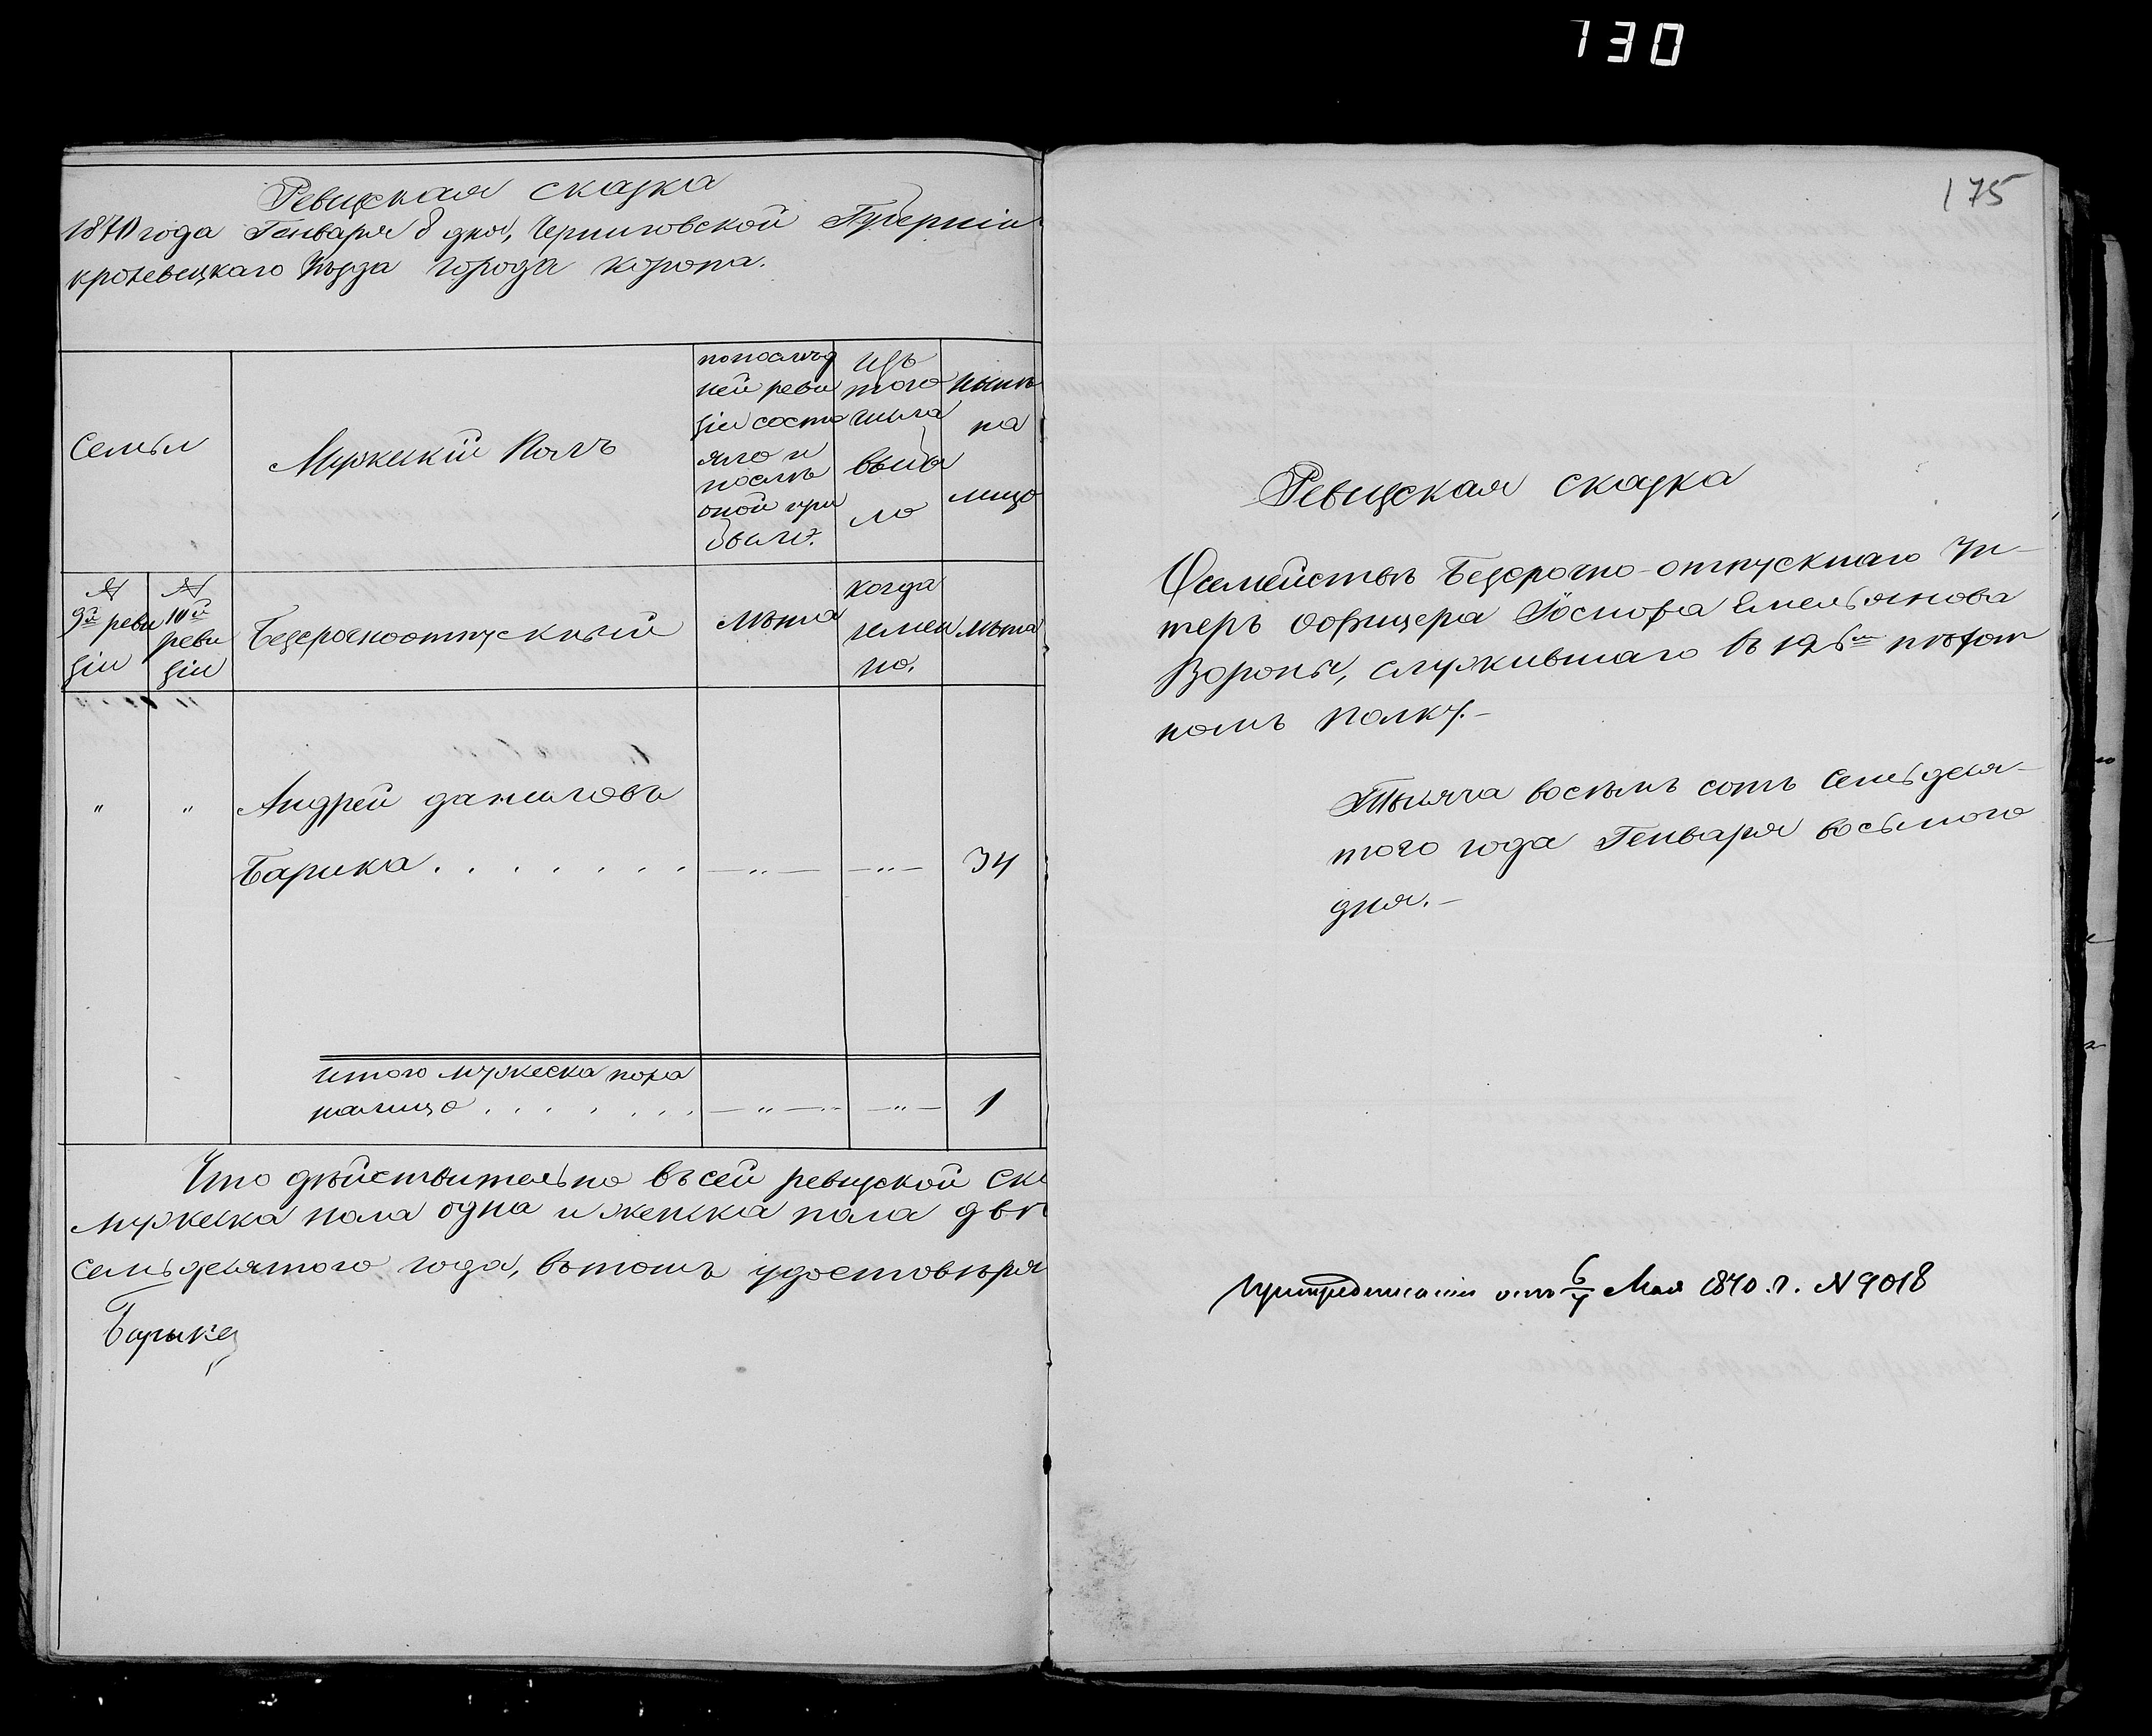 130
Ревизская сказка
1870 года Генваря 8 дня, Черниговской Губерніи
кролевецкаго уѣзда города коропа.
Семьи
Мужескій Полъ
попослѣд
ней реви
зіи состо
яло и
послѣ
оной при
было.
Изъ
того
числа
выбы
ло
нынѣ
на
лицо
№
9й реви
зіи
№
10й
реви
зіи
Безсрочноотпускный
лѣта
когда
имен
но.
лѣта
" " Андрей даниловъ
Барика . . . . . . . —"— —"— 34
итого мужеска пола
налицо . . . . . . . —"— —"— 1
Что дѣйствительно въ сей ревизской ск
мужеска пола одна и женска пола двѣ
семьдесятого года, въ томъ удостовѣря
Барыка
175
Ревизская сказка
О семействѣ Безсрочно-отпускнаго Ун-
теръ оофицера Іосифа Емельянова
Вороны, служившаго въ 126м пѣхот
номъ полку.—
Тысяча восемь сотъ семьдеся-
того года Генваря восьмого
дня.—
При предписаніи отъ 6/7 Мая 1870 г. № 9018